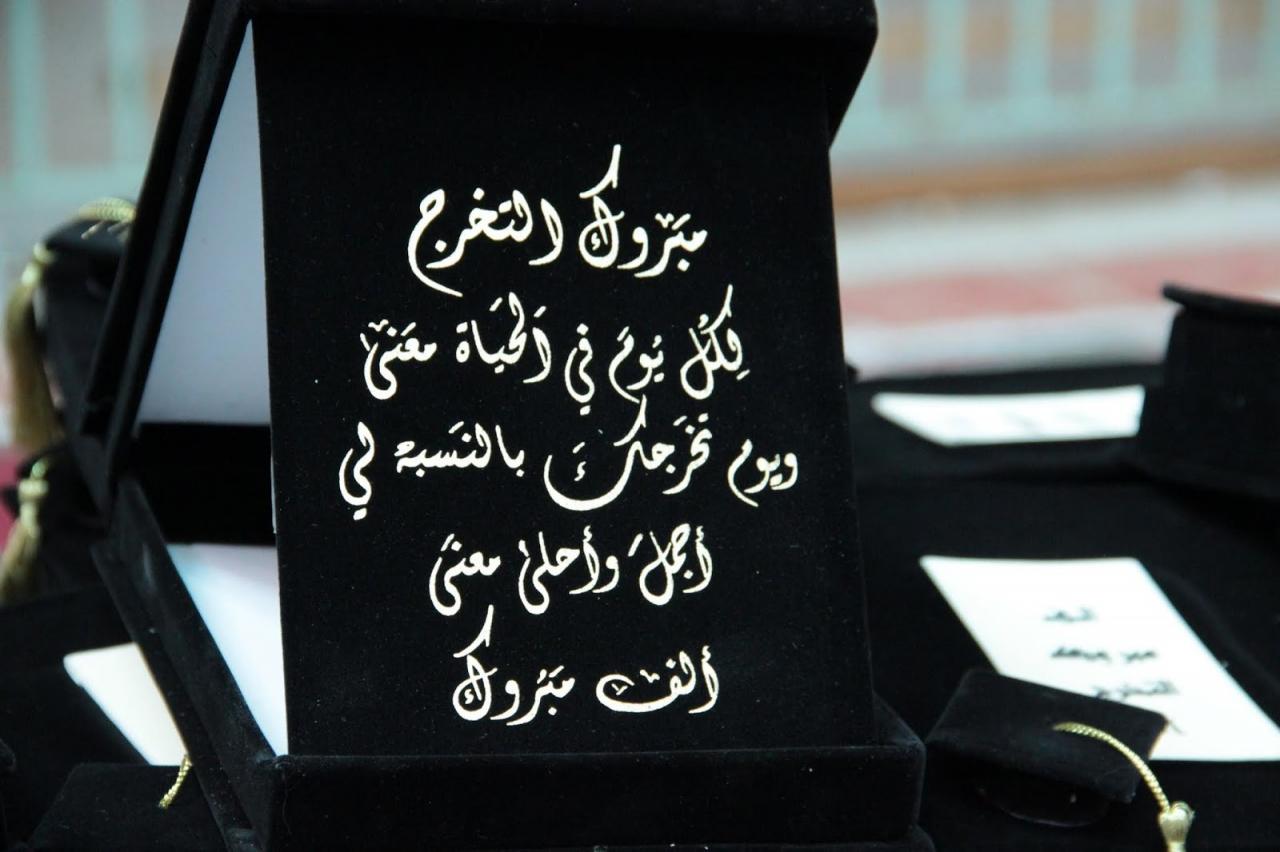 مبَروك التخرج
لِكُل يَومَ في اَلحَيَاة معَنىَ
ويوم تخَرَجكَ بالنَسبه لي
أجملَ وأحلىَ معنىَ
ألف مبَروك